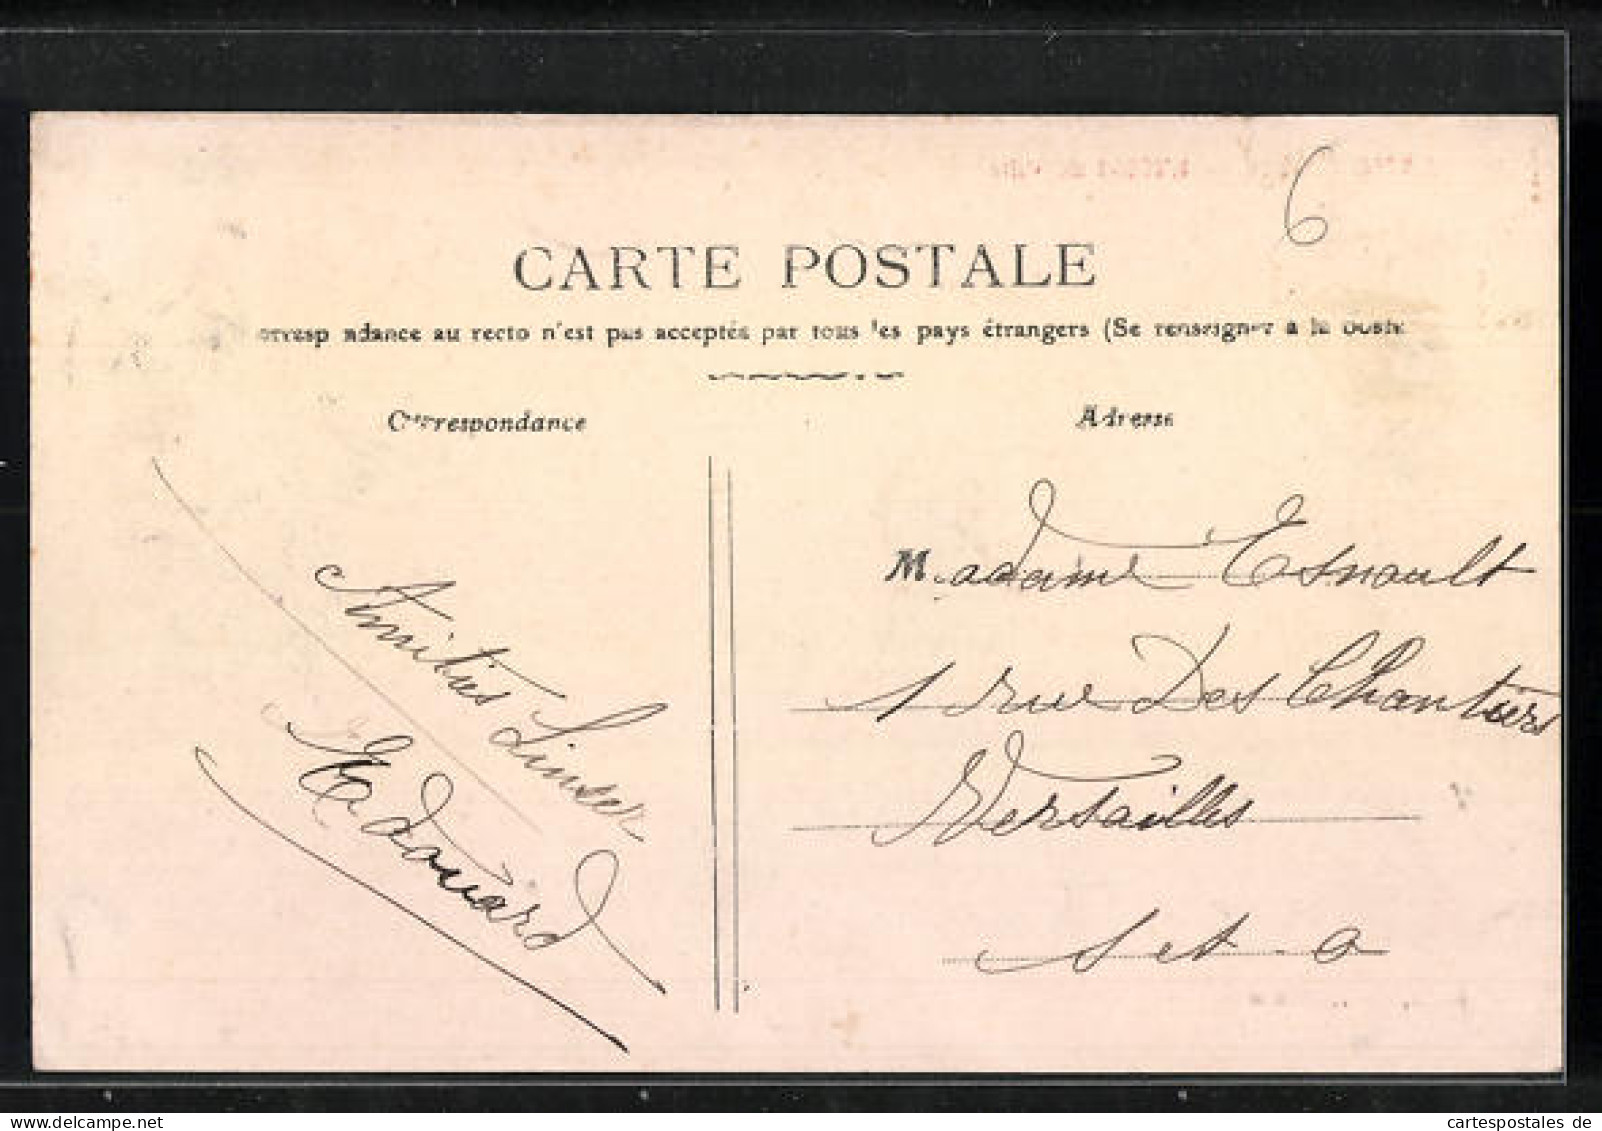 6
CARTE POSTALE
au recto n'est pas acceptée par tous les pays étrangers (Se renseigner à la
Correspondance
Adresse
Amitiés
Edouard
Madame Esnault
1 rue Des Chantiers
Versailles
S et O
cartespostales de